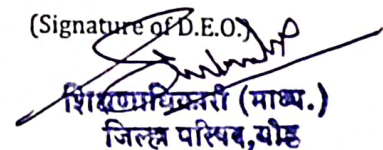 (Signature of D.E.O.)
शिक्षणाधिकारी (माध्य.)
जिल्हा परिषद, बीड